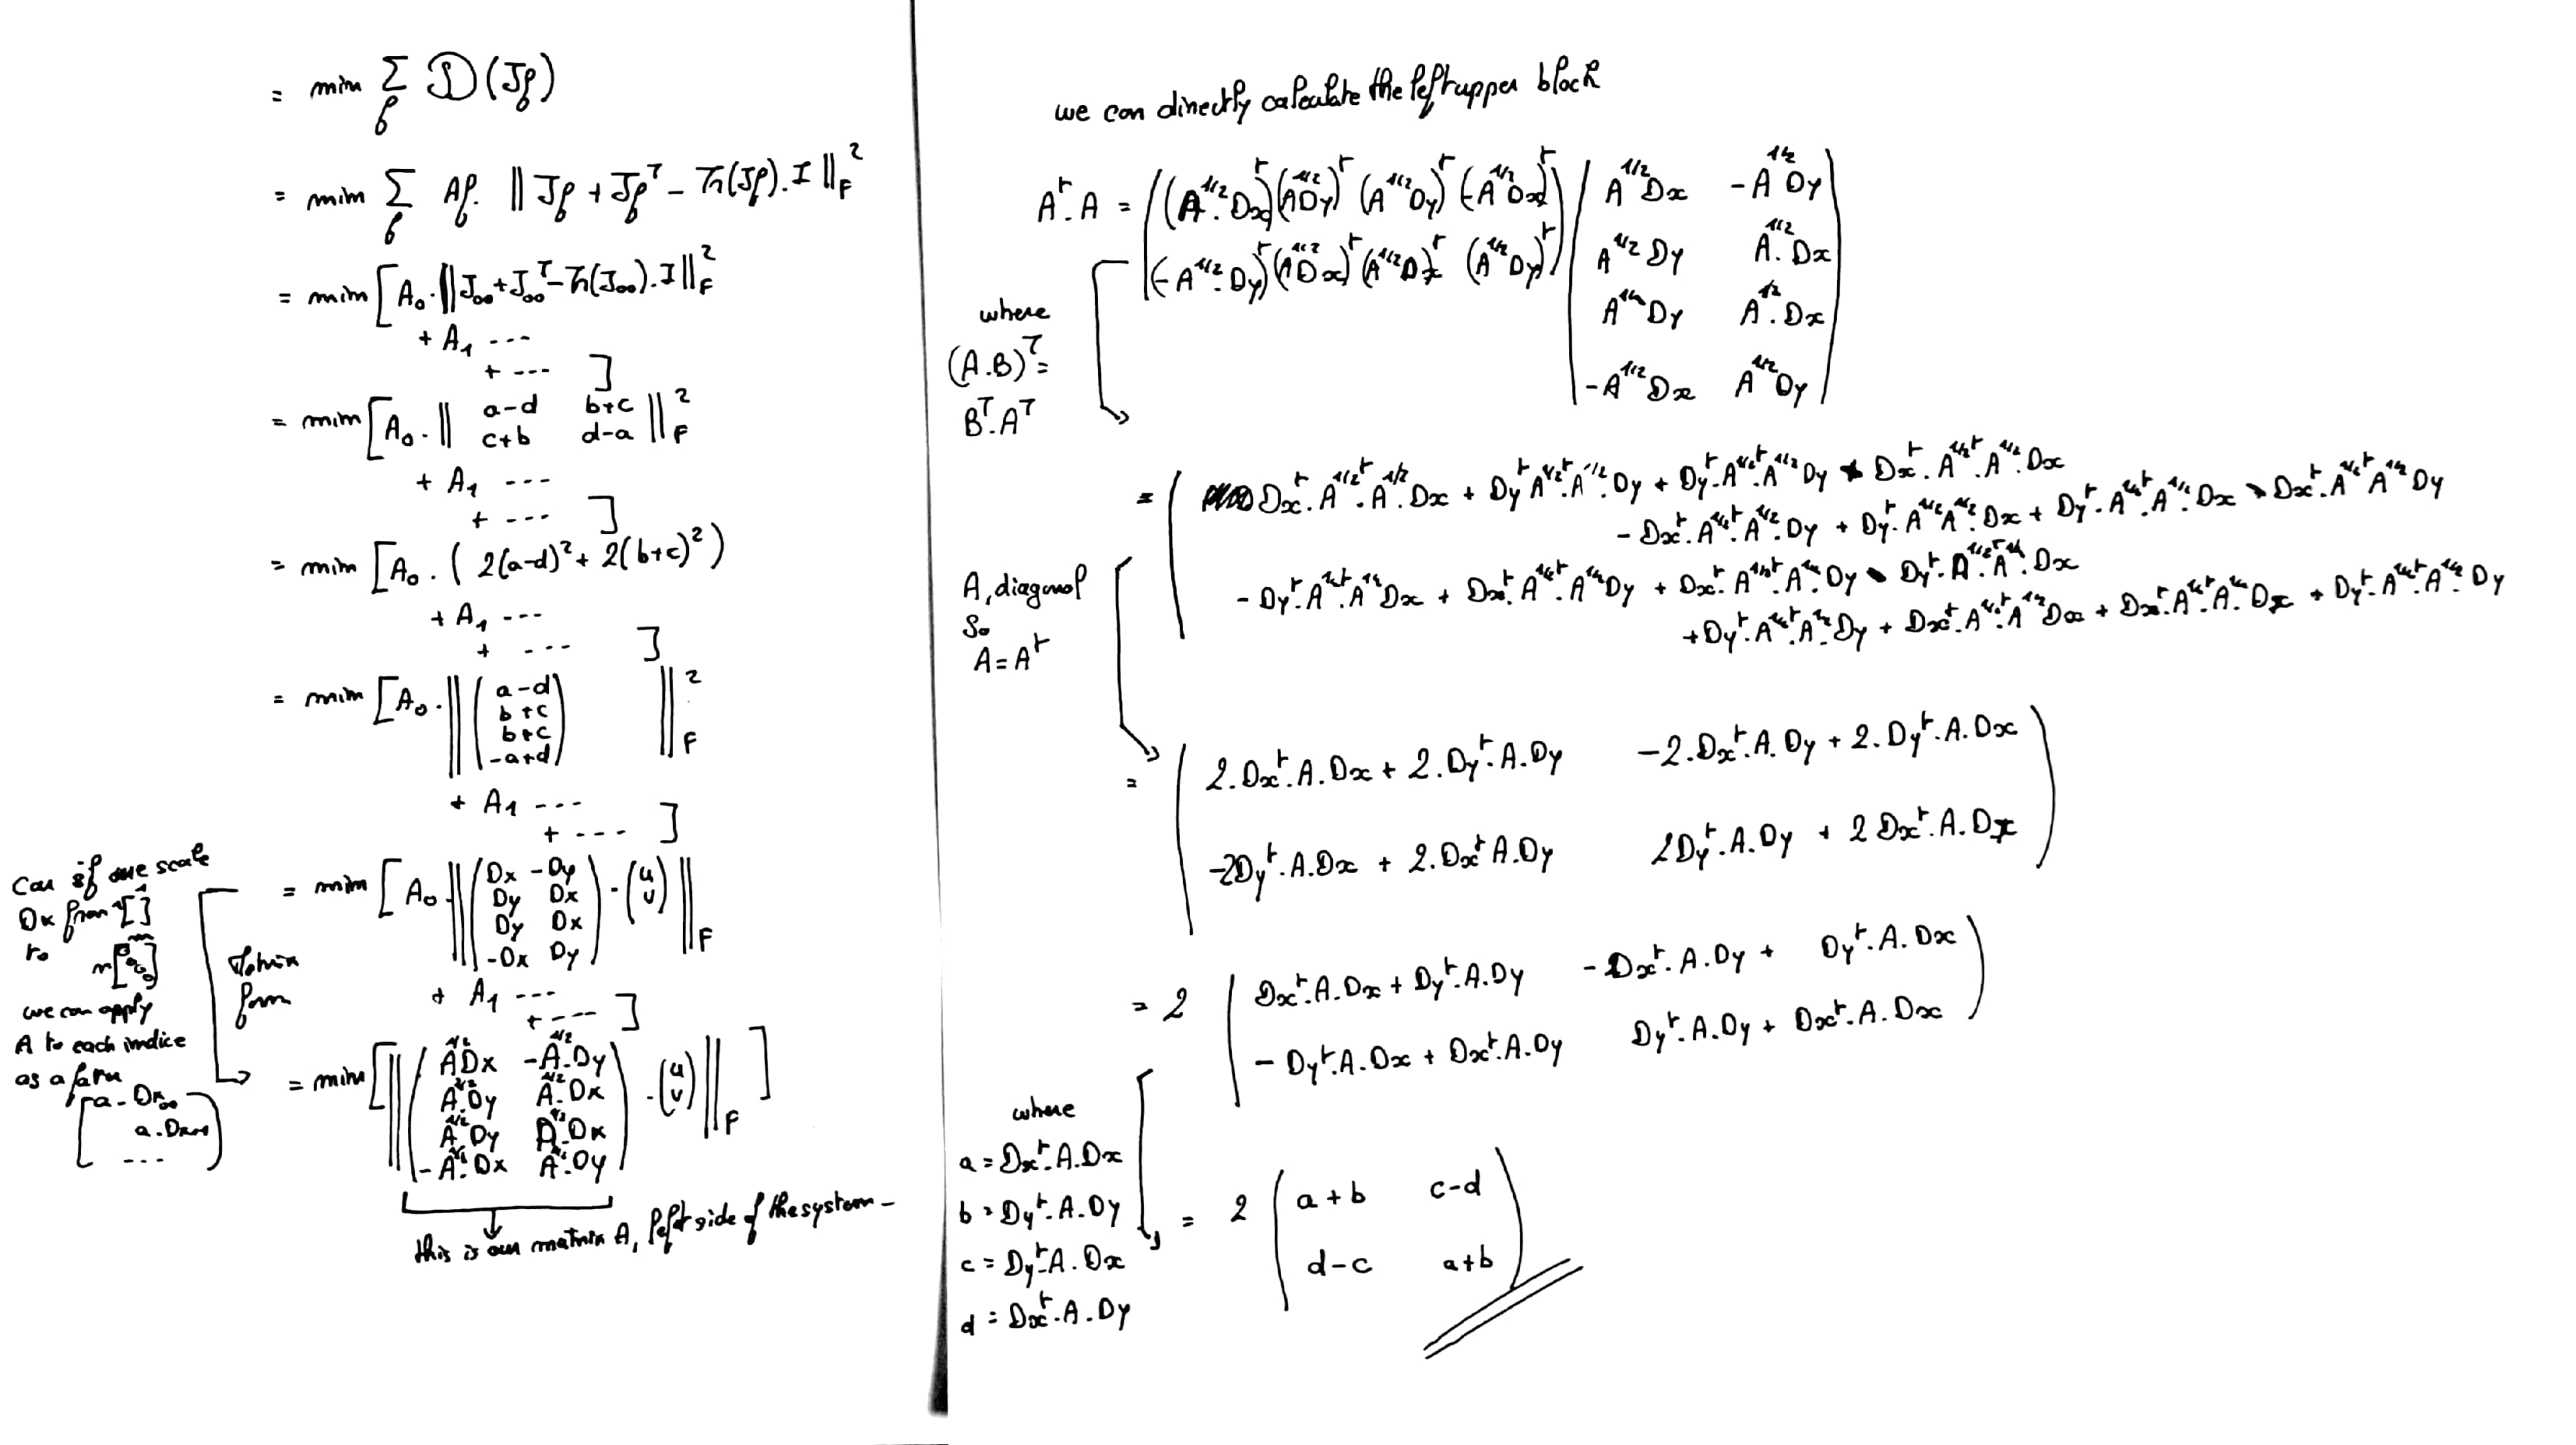 = min Σ_f 𝒟(J_f)
= min Σ_f A_f. ‖ J_f + J_f^T - Tr(J_f).I ‖_F^2
= min [A_0.‖J_00 + J_00^T - Tr(J_00).I‖_F^2
+ A_1 ---
+ --- ]
= min [A_0.‖ a-d b+c
c+b d-a ‖_F^2
+ A_1 ---
+ --- ]
= min [A_0.( 2(a-d)^2 + 2(b+c)^2 )
+ A_1 ---
+ --- ]
= min [A_0.‖ (a-d
b+c
b+c
-a+d) ‖_F^2
+ A_1 ---
+ --- ]
= min [A_0 ‖ (Dx -Dy
Dy Dx
Dy Dx
-Dx Dy) . (u v) ‖_F
+ A_1 ---
+ --- ]
= min [ ‖ (A^1/2 Dx -A^1/2.Dy
A^1/2.Dy A^1/2.Dx
A^1/2.Dy A^1/2.Dx
-A^1/2.Dx A^1/2.Dy) . (u v) ‖_F ]
this is our matrix A, left side of the system -
scale
Dx from
to
we can apply
A to each indice
as a
[a.Dx_00
a.Dx
--- ]
form
we can directly calculate the left upper block
A^t.A = ( (A^1/2.Dx)^t (A^1/2 Dy)^t (A^1/2 Dy)^t (-A^1/2 Dx)^t
(-A^1/2.Dy)^t (A^1/2 Dx)^t (A^1/2 Dx)^t (A^1/2 Dy)^t )
( A^1/2 Dx -A^1/2 Dy
A^1/2 Dy A^1/2.Dx
A^1/2 Dy A^1/2.Dx
-A^1/2 Dx A^1/2 Dy )
where
(A.B)^T =
B^T.A^T
= ( Dx^t.A^1/2^t.A^1/2.Dx + Dy^t.A^1/2^t.A^1/2.Dy + Dy^t.A^1/2^t.A^1/2 Dy + Dx^t.A^1/2^t.A^1/2.Dx
- Dx^t.A^1/2^t.A^1/2.Dy + Dy^t.A^1/2 A^1/2.Dx + Dy^t.A^1/2^t.A^1/2.Dx - Dx^t.A^1/2^t A^1/2 Dy
- Dy^t.A^1/2^t.A^1/2 Dx + Dx^t.A^1/2^t.A^1/2 Dy + Dx^t.A^1/2^t.A^1/2.Dy - Dy^t.A^1/2^t.A^1/2.Dx
+ Dy^t.A^1/2^t.A^1/2.Dy + Dx^t.A^1/2^t.A^1/2 Dx + Dx^t.A^1/2^t.A^1/2.Dx + Dy^t.A^1/2^t.A^1/2.Dy
A, diagonal
So
A = A^t
= ( 2.Dx^t.A.Dx + 2.Dy^t.A.Dy -2.Dx^t.A.Dy + 2.Dy^t.A.Dx
-2Dy^t.A.Dx + 2.Dx^t A.Dy 2Dy^t.A.Dy + 2 Dx^t.A.Dx )
= 2 ( Dx^t.A.Dx + Dy^t.A.Dy - Dx^t.A.Dy + Dy^t.A.Dx
- Dy^t.A.Dx + Dx^t.A.Dy Dy^t.A.Dy + Dx^t.A.Dx )
where
a = Dx^t.A.Dx
b = Dy^t.A.Dy
c = Dy^t.A.Dx
d = Dx^t.A.Dy
= 2 ( a+b c-d
d-c a+b )